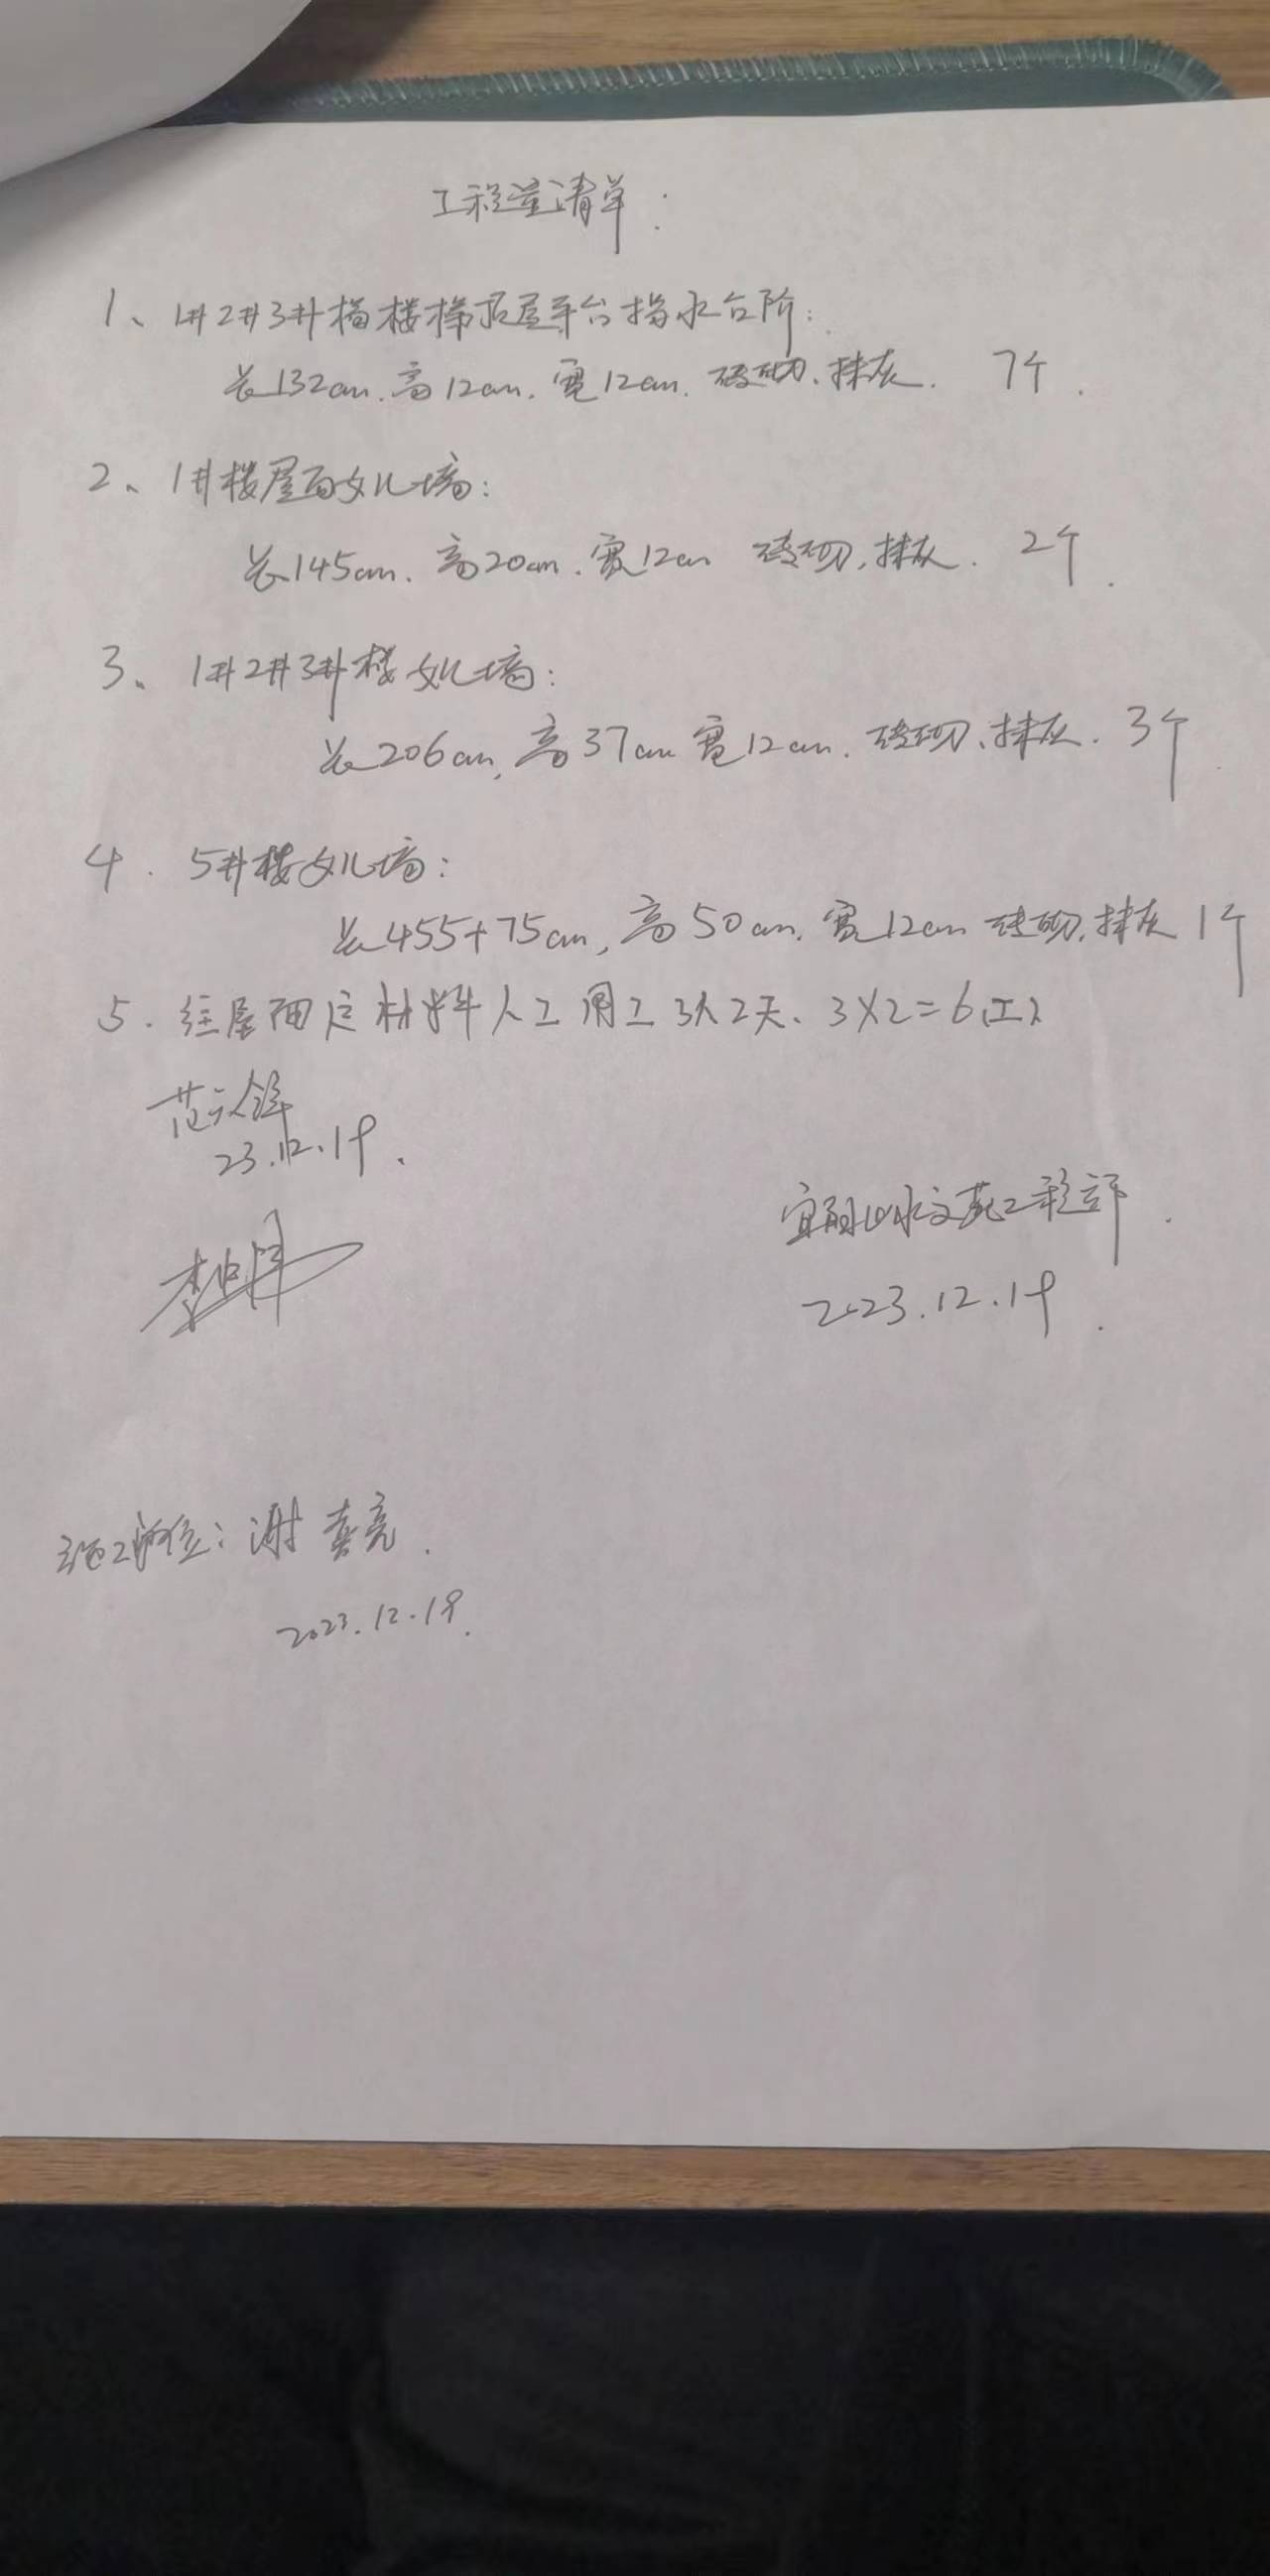 工程量清单:
1、1#2#3#楼楼梯顶屋平台挡水台阶:
长132cm.高12cm.宽12cm.砖砌、抹灰. 7个.
2、1#楼屋面女儿墙:
长145cm.高20cm.宽12cm 砖砌,抹灰. 2个.
3、1#2#3#楼女儿墙:
长206cm,高37cm宽12cm.砖砌、抹灰.3个
4. 5#楼女儿墙:
长455+75cm,高50cm.宽12cm砖砌,抹灰1个
5.往屋面 材料人工用工3人2天、3X2=6(工)
范
23.12.19.
李
山水文苑工程部.
2023.12.19.
施工单位:谢喜亮.
2023.12.19.